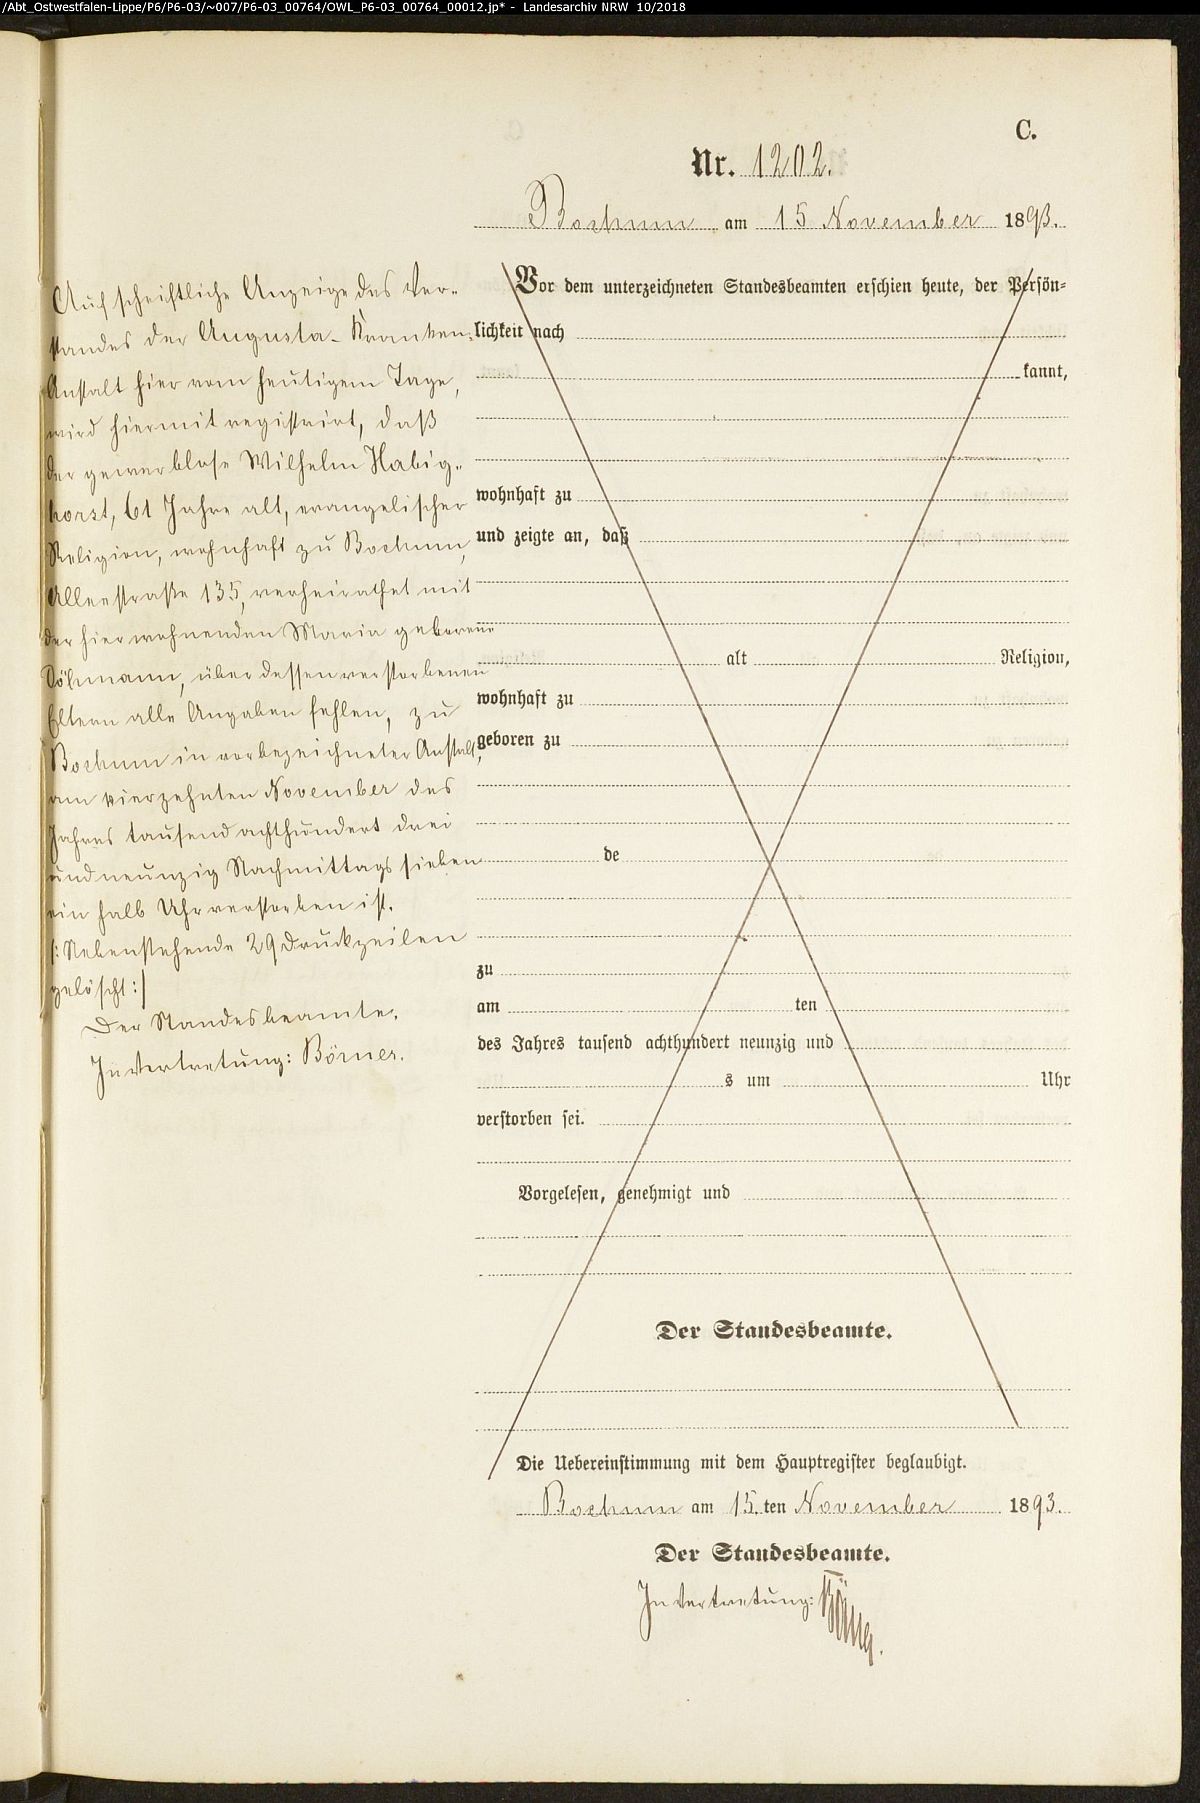 /Abt_Ostwestfalen-Lippe/P6/P6-03/~007/P6-03_00764/OWL_P6-03_00764_00012.jp* - Landesarchiv NRW 10/2018
C.
Nr. 1202.
Bochum am 15 November 1893.
Auf schriftliche Anzeige des Vor-
standes der Augusta-Kranken-
Anstalt hier vom heutigem Tage,
wird hiermit registrirt, daß
der gewerblose Wilhelm Habig-
horst, 61 Jahre alt, evangelischer
Religion, wohnhaft zu Bochum,
Alleestraße 135, verheirathet mit
der hier wohnenden Maria geborene
Döhmann, über dessen verstorbenen
Eltern alle Angaben fehlen, zu
Bochum in vorbezeichneter Anstalt,
am vierzehnten November des
Jahres tausend achthundert drei
und neunzig Nachmittags sieben
ein halb Uhr verstorben ist.
|: Nebenstehende 29 Druckzeilen
gelöscht :|
Der Standesbeamte.
In Vertretung: Börner.
Vor dem unterzeichneten Standesbeamten erschien heute, der Persön-
lichkeit nach
kannt,
wohnhaft zu
und zeigte an, daß
alt Religion,
wohnhaft zu
geboren zu
de
zu
am ten
des Jahres tausend achthundert neunzig und
s um Uhr
verstorben sei.
Vorgelesen, genehmigt und
Der Standesbeamte.
Die Uebereinstimmung mit dem Hauptregister beglaubigt.
Bochum am 15. ten November 1893.
Der Standesbeamte.
In Vertretung: Börner.